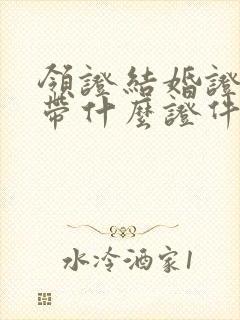 領證結婚證
帶什麼證件
水冷酒家1